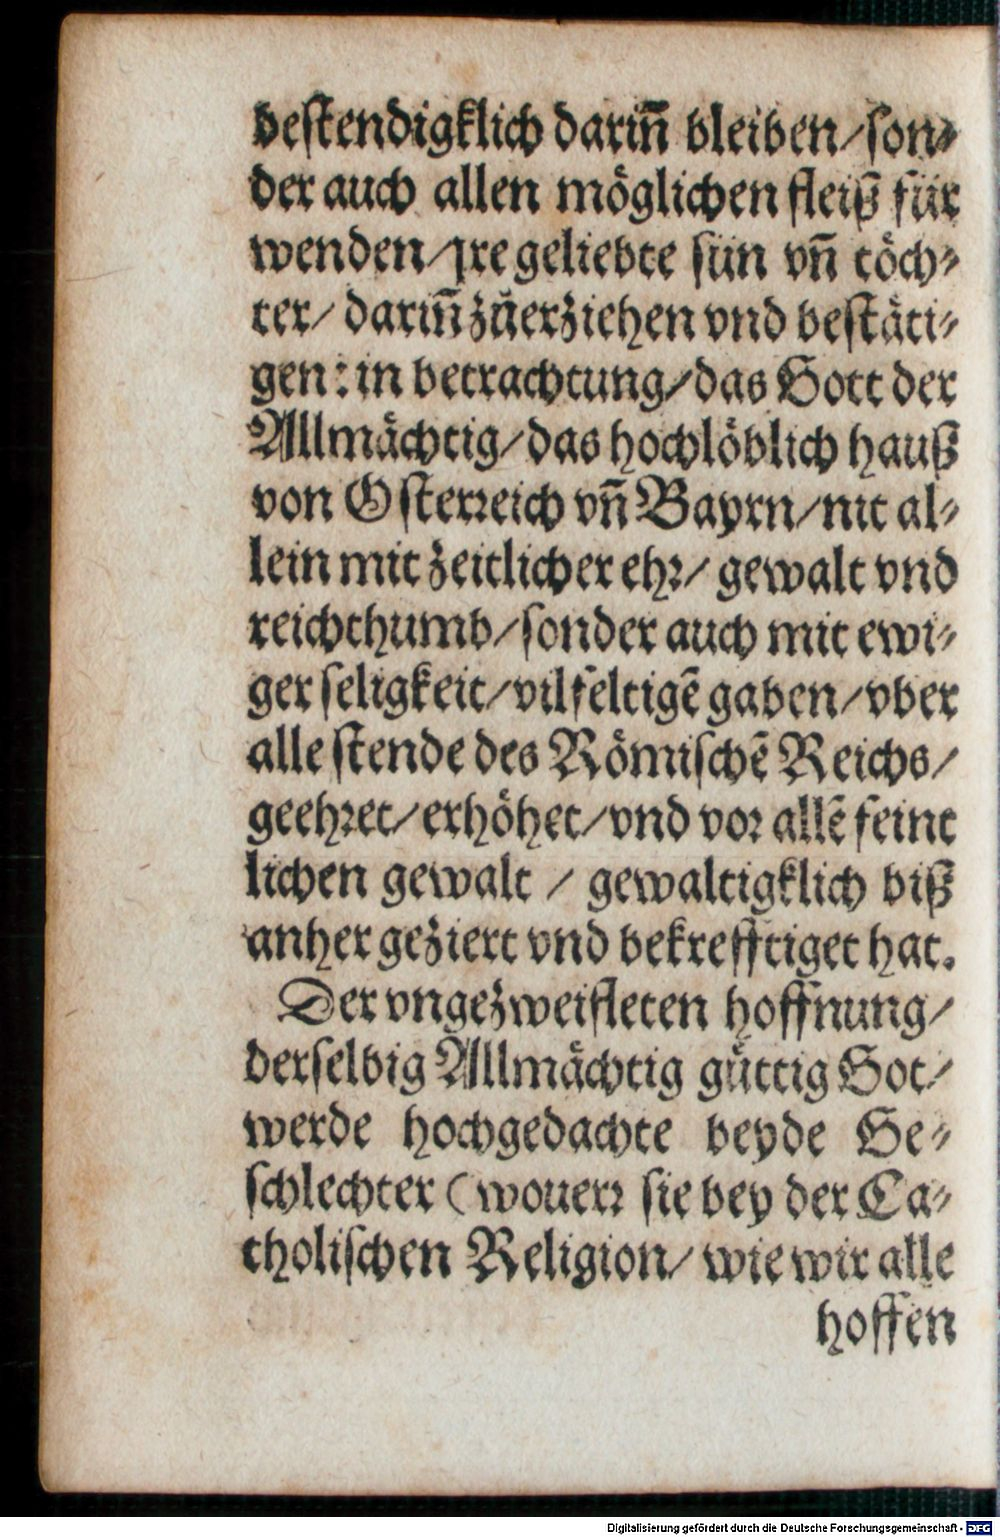 bestendigklich dariñ bleiben/son⸗
der auch allen möglichen fleiß für
wenden/jre geliebte sün vñ töch⸗
ter/ dariñ zůerziehen vnd bestäti⸗
gen: in betrachtung/das Gott der
Allmächtig/das hochlöblich hauß
von Osterreich vñ Bayrn/nit al⸗
lein mit zeitlicher ehr/ gewalt vnd
reichthumb/sonder auch mit ewi⸗
ger seligkeit/vilfeltigẽ gaben/vber
alle stende des Römischẽ Reichs/
geehret/erhöhet/vnd vor allẽ feint
lichen gewalt / gewaltigklich biß
anher geziert vnd bekrefftiget hat.
Der vngezweifleten hoffnung/
derselbig Allmächtig güttig Got/
werde hochgedachte beyde Ge⸗
schlechter (wouerr sie bey der Ca⸗
tholischen Religion/ wie wir alle
hoffen
Digitalisierung gefördert durch die Deutsche Forschungsgemeinschaft - DFG